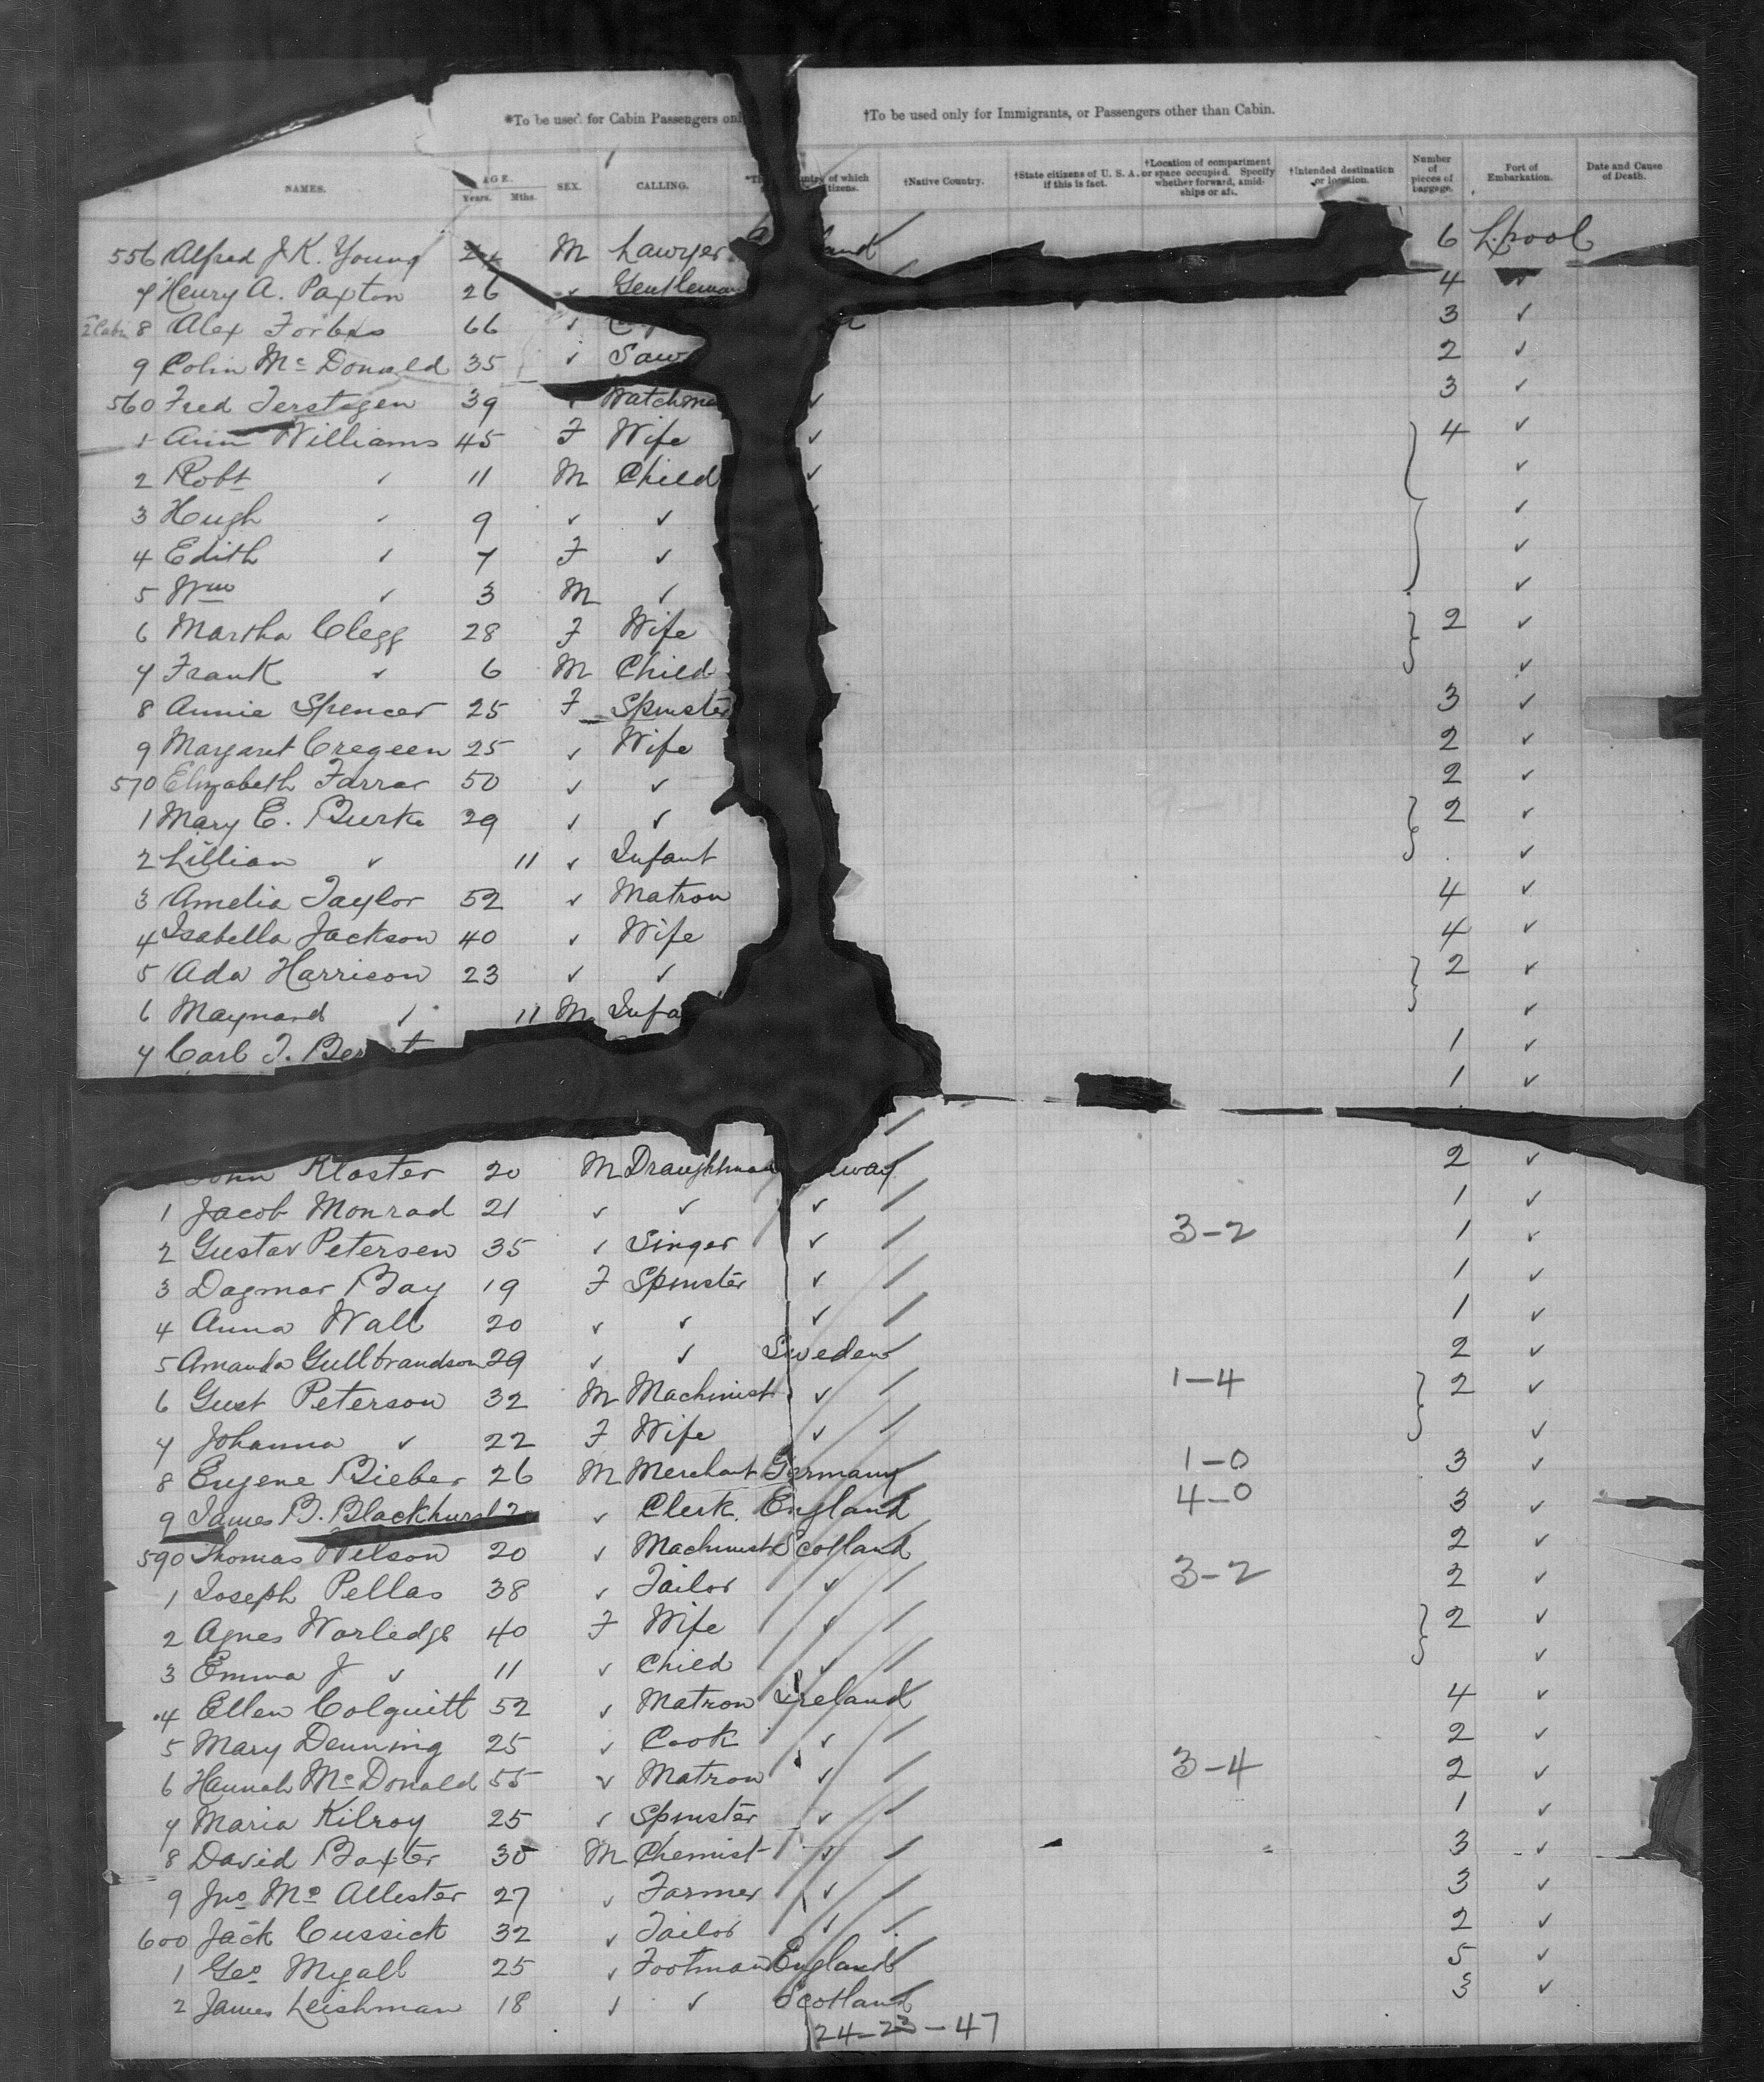 *To be used for Cabin Passengers only
†To be used only for Immigrants, or Passengers other than Cabin.
NAMES. AGE. Years. Mths. SEX. CALLING. of which †Native Country. †State citizens of U. S. A. if this is fact. †Location of compartment or space occupied. Specify whether forward, amidships or aft. †Intended destination or location. Number of pieces of baggage. Port of Embarkation. Date and Cause of Death.
556 Alfred J.K. Young M Lawyer 6 L.pool
7 Henry A. Paxton 26 ✓ Gentleman 4 ✓
2 Cabin 8 Alex Forbes 66 ✓ 3 ✓
9 Colin Mc Donald 35 ✓ 2 ✓
560 Fred Terstegen 39 ✓ 3 ✓
1 Ann Williams 45 F Wife ✓ 4 ✓
2 Robt ✓ 11 M Child ✓ ✓
3 Hugh ✓ 9 ✓ ✓ ✓
4 Edith ✓ 7 F ✓ ✓
5 Wm ✓ 3 M ✓ ✓
6 Martha Clegg 28 F Wife 2 ✓
7 Frank ✓ 6 M Child ✓
8 Annie Spencer 25 F Spinster 3 ✓
9 Margaret Cregeen 25 ✓ Wife 2 ✓
570 Elizabeth Farrar 50 ✓ ✓ 2 ✓
1 Mary E. Burke 29 ✓ ✓ 2 ✓
2 Lillian ✓ 11 ✓ Infant ✓
3 Amelia Taylor 52 ✓ Matron 4 ✓
4 Isabella Jackson 40 ✓ Wife 4 ✓
5 Ada Harrison 23 ✓ ✓ 2 ✓
6 Maynard ✓ 11 M Infa ✓
7 Carl T. 1 ✓
1 ✓
John Kloster 20 M Draughtman way 2 ✓
1 Jacob Monrad 21 ✓ ✓ ✓ 1 ✓
2 Gustav Petersen 35 ✓ Singer ✓ 3-2 1 ✓
3 Dagmar Bay 19 F Spinster ✓ 1 ✓
4 Anna Wall 20 ✓ ✓ ✓ 1 ✓
5 Amanda Gullbrandson 29 ✓ ✓ Sweden 2 ✓
6 Gust Peterson 32 M Machinist ✓ 1-4 2 ✓
7 Johanna ✓ 22 F Wife ✓ ✓
8 Eugene Bieber 26 M Merchant Germany 1-0 3 ✓
9 James B. Blackhurst ✓ Clerk England 4-0 3 ✓
590 Thomas Wilson 20 ✓ Machinist Scotland 2 ✓
1 Joseph Pellas 38 ✓ Tailor ✓ 3-2 2 ✓
2 Agnes Worledge 40 F Wife ✓ 2 ✓
3 Emma J ✓ 11 ✓ Child ✓ ✓
4 Ellen Colquitt 52 ✓ Matron Ireland 4 ✓
5 Mary Denning 25 ✓ Cook ✓ 2 ✓
6 Hannah Mc Donald 55 ✓ Matron ✓ 3-4 2 ✓
7 Maria Kilroy 25 ✓ Spinster ✓ 1 ✓
8 David Baxter 30 M Chemist ✓ 3 ✓
9 Jno Mc Allester 27 ✓ Farmer ✓ 3 ✓
600 Jack Cussick 32 ✓ Tailor ✓ 2 ✓
1 Geo Myall 25 ✓ Footman England 5 ✓
2 James Leishman 18 ✓ ✓ Scotland 3 ✓
24-23-47